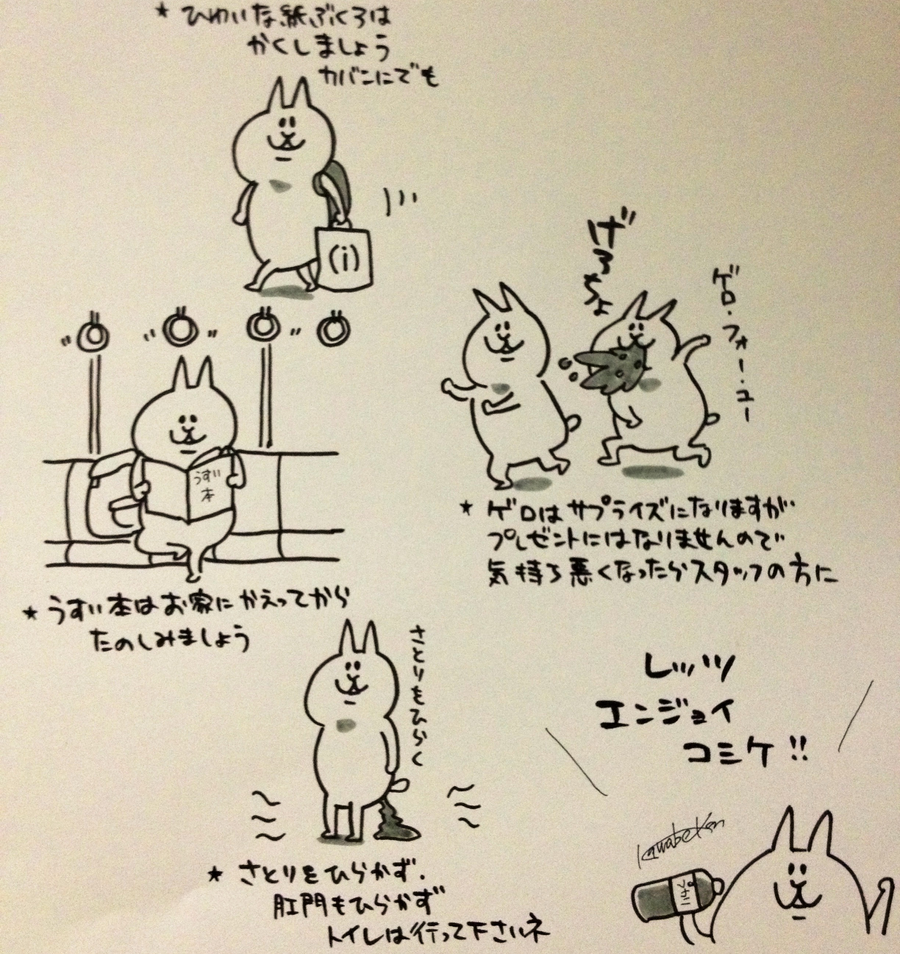 ★ ひわいな紙ぶくろは
かくしましょう
カバンにでも
(i)
げろちょ
ゲロ・フォー・ユー
★ ゲロはサプライズになりますが
プレゼントにはなりませんので
気持ち悪くなったらスタッフの方に
うすい
本
★ うすい本はお家にかえってから
たのしみましょう
さとりをひらく
★ さとりをひらかず.
肛門もひらかず
トイレは行って下さいネ
レッツ
エンジョイ
コミケ!!
KawabeKen